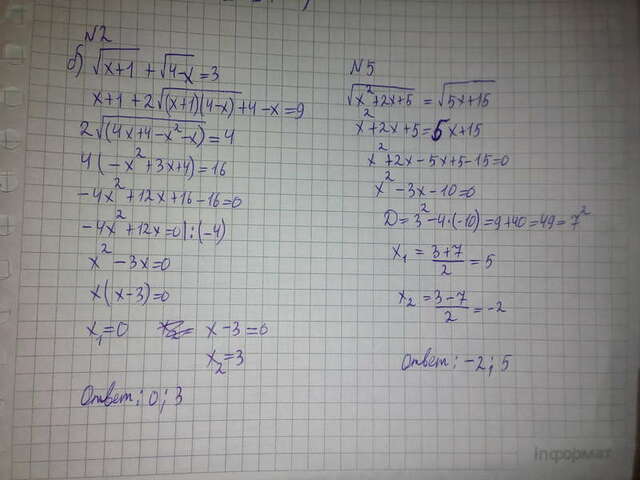 N2
б) √(x+1) + √(4-x) = 3
x+1+2√((x+1)(4-x))+4-x=9
2√((4x+4-x²-x))=4
4(-x²+3x+4)=16
-4x²+12x+16-16=0
-4x²+12x=0|:(-4)
x²-3x=0
x(x-3)=0
x₁=0 x-3=0
x₂=3
Ответ: 0; 3
N5
√(x²+2x+5) = √(5x+15)
x²+2x+5=5x+15
x²+2x-5x+5-15=0
x²-3x-10=0
D=3²-4·(-10)=9+40=49=7²
x₁ = (3+7)/2 = 5
x₂ = (3-7)/2 = -2
Ответ: -2; 5
inформат